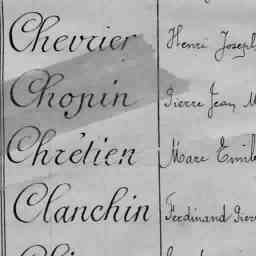 Chevrier Henri Joseph
Chopin Pierre Jean M
Chrétien Marc Emile
Clanchin Ferdinand Pierre